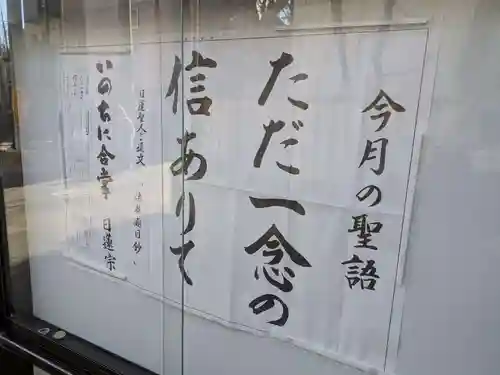 今月の聖語
ただ一念の
信ありて
日蓮聖人ご遺文
いのちに合掌 日蓮宗